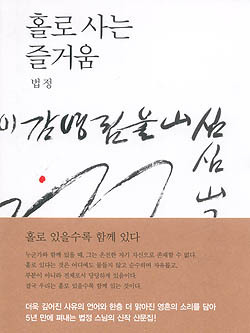 홀로 사는
즐거움
법정
홀로 있을수록 함께 있다
누군가와 함께 있을 때, 그는 온전한 자기 자신으로 존재할 수 없다.
홀로 있다는 것은 어디에도 물들지 않고 순수하며 자유롭고,
부분이 아니라 전체로서 당당하게 있음이다.
결국 우리는 홀로 있을수록 함께 있는 것이다.
더욱 깊어진 사유의 언어와 한층 더 맑아진 영혼의 소리를 담아
5년 만에 펴내는 법정 스님의 신작 산문집!